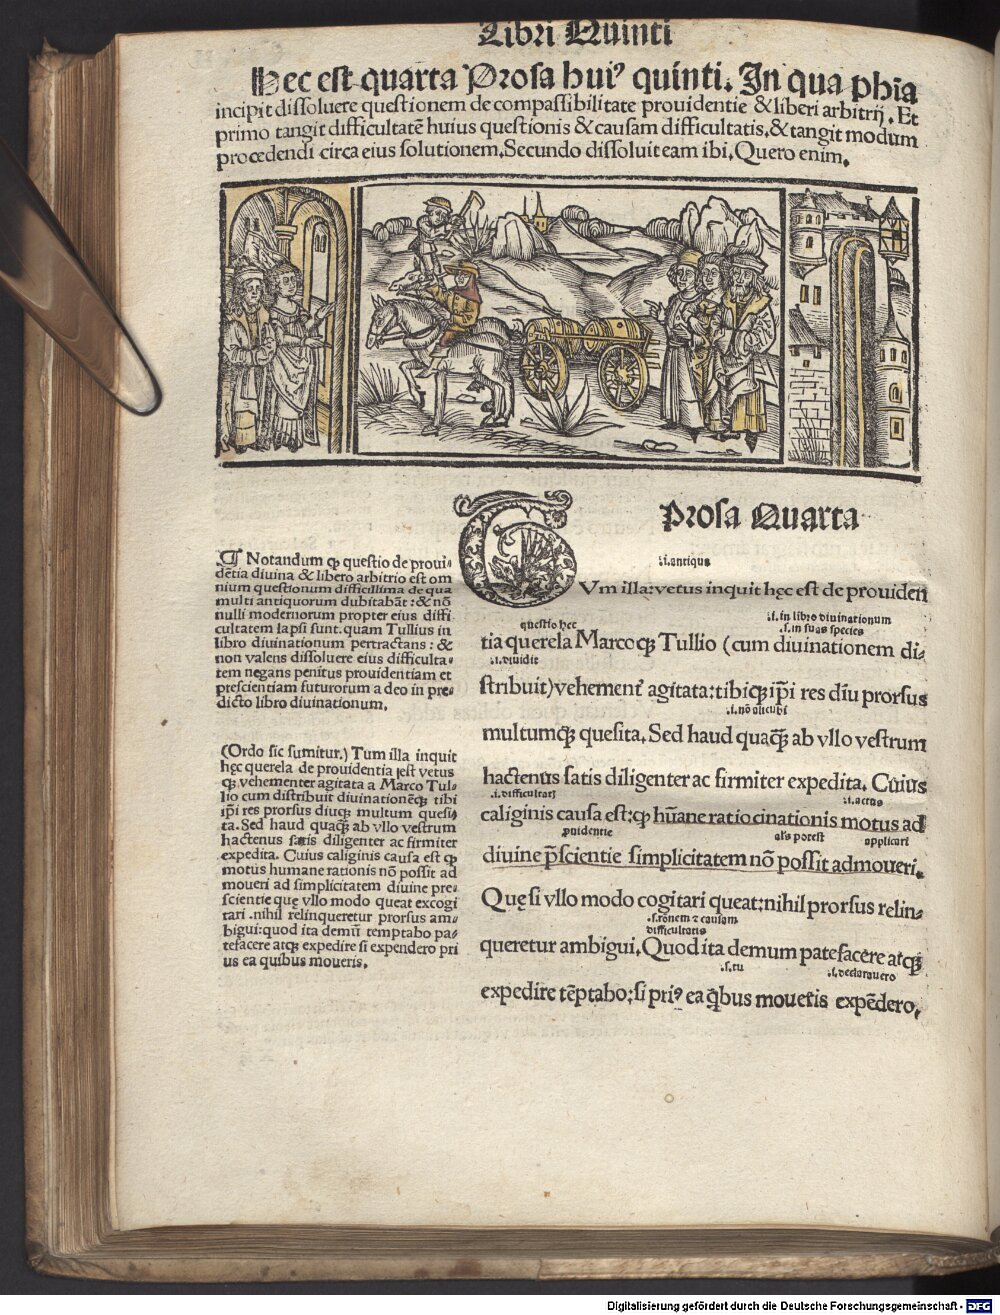 Libri Quinti
Hec est quarta Prosa huiꝰ quinti. In qua phia
incipit dissoluere questionem de compassibilitate prouidentie & liberi arbitrij. Et
primo tangit difficultatē huius questionis & causam difficultatis, & tangit modum
procedendi circa eius solutionem. Secundo dissoluit eam ibi, Quero enim.
Prosa Quarta
.i. antiqua
TVm illa: vetus inquit hęc est de prouiden
questio hec
.i. in libro diuinationum
.s. in suas species
tia querela Marcoqꝫ Tullio (cum diuinationem di-
.i. diuidit
stribuit) vehementˀ agitata: tibiqꝫ ip̄i res diu prorsus
.i. nō alicubi
multumqꝫ quesita. Sed haud quaqꝫ̄ ab vllo vestrum
hactenus satis diligenter ac firmiter expedita. Cuius
.i. difficultatis
.i. actus
caliginis causa est: qꝙ hūane ratiocinationis motus ad
ꝓuidentie
als potest
applicari
diuine p̄scientie simplicitatem nō possit admoueri.
Quę si vllo modo cogitari queat: nihil prorsus relin-
.s. rōnem ⁊ causam
difficultatis
queretur ambigui. Quod ita demum patefacere atqꝫ
.s. tu
.i. declarauero
expedire tēptabo: si priꝰ ea q̄bus moueris expēdero.
¶ Notandum ꝙ questio de proui-
dētia diuina & libero arbitrio est om
nium questionum difficillima de qua
multi antiquorum dubitabāt: & nō
nulli modernorum propter eius diffi
cultatem lapsi sunt. quam Tullius in
libro diuinationum pertractans: &
non valens dissoluere eius difficulta-
tem negans penitus prouidentiam et
prescientiam futurorum a deo in pre-
dicto libro diuinationum.
(Ordo sic sumitur.) Tum illa inquit
hęc querela de prouidentia est vetus
qꝫ vehementer agitata a Marco Tul-
lio cum distribuit diuinationēqꝫ tibi
ip̄i res prorsus diuqꝫ multum quesi-
ta. Sed haud quaqꝫ̄ ab vllo vestrum
hactenus satis diligenter ac firmiter
expedita. Cuius caliginis causa est ꝙ
motus humane rationis nō possit ad
moueri ad simplicitatem diuine pre-
scientie quę vllo modo queat excogi
tari. nihil relinqueretur prorsus am-
bigui: quod ita demū temptabo pa-
tefacere atqꝫ expedire si expendero pri
us ea quibus moueris.
Digitalisierung gefördert durch die Deutsche Forschungsgemeinschaft - DFG